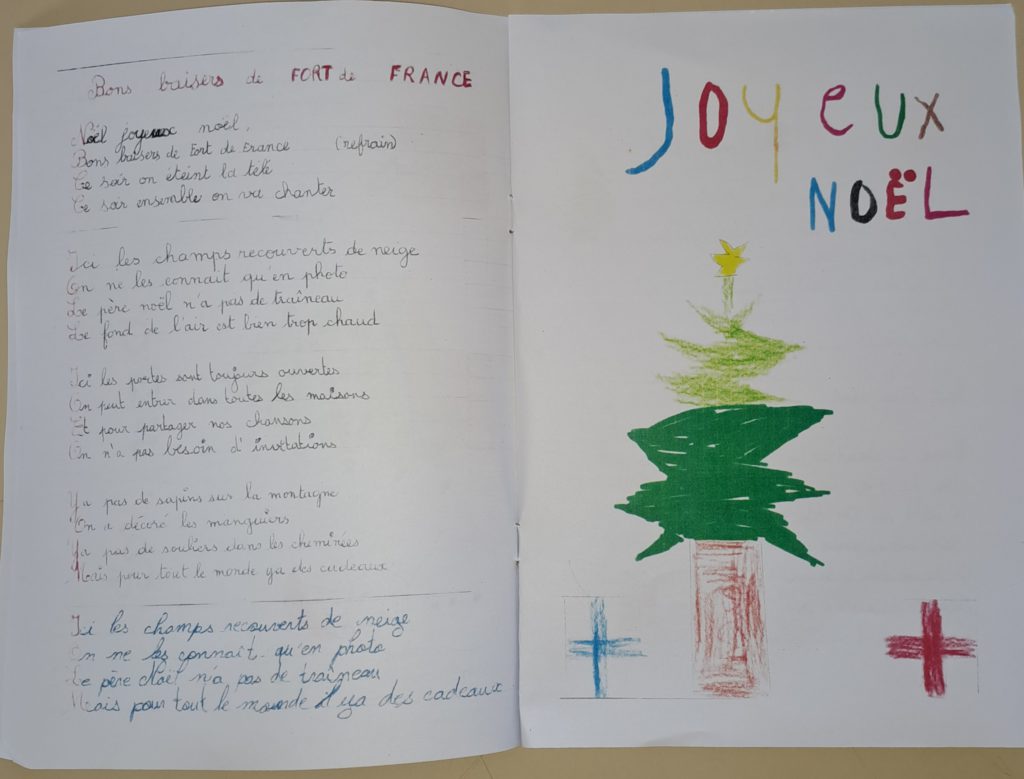 Bons baisers de FORT de FRANCE
Noël joyeux noël,
Bons baisers de Fort de France (refrain)
Ce soir on éteint la télé
Ce soir ensemble on va chanter
Ici les champs recouverts de neige
On ne les connait qu'en photo
Le père noël n'a pas de traîneau
Le fond de l'air est bien trop chaud
Ici les portes sont toujours ouvertes
On peut entrer dans toutes les maisons
Et pour partager nos chansons
On n'a pas besoin d'invitations
Ya pas de sapins sur la montagne
On a décoré les manguiers
Ya pas de souliers dans les cheminées
Mais pour tout le monde ya des cadeaux
Ici les champs recouverts de neige
On ne les connaît qu'en photo
Le père Noël n'a pas de traîneau
Mais pour tout le monde il ya des cadeaux
JOyeux
NOËL